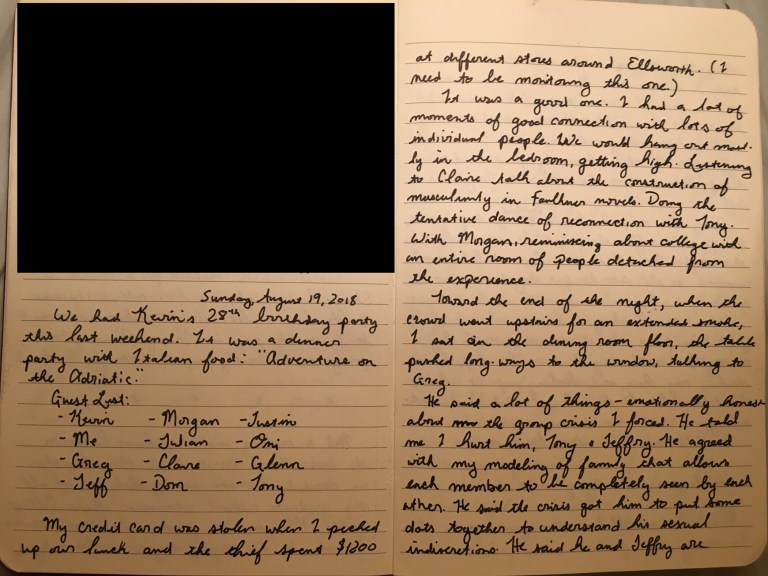 Sunday, August 19, 2018
We had Kevin's 28th birthday party
this last weekend. It was a dinner
party with Italian food: "Adventure on
the Adriatic."
Guest List:
- Kevin - Morgan - Justin
- Me - Julian - Omi
- Greg - Claire - Glenn
- Jeff - Dom - Tony
My credit card was stolen when I picked
up our lunch and the thief spent $1200
at different stores around Ellsworth. (I
need to be monitoring this one.)
It was a good one. I had a lot of
moments of good connection with lots of
individual people. We would hang out most-
ly in the bedroom, getting high. Listening
to Claire talk about the construction of
masculinity in Faulkner novels. Doing the
tentative dance of reconnection with Tony.
With Morgan, reminiscing about college with
an entire room of people detached from
the experience.
Toward the end of the night, when the
crowd went upstairs for an extended smoke,
I sat on the dining room floor, the table
pushed long-ways to the window, talking to
Greg.
He said a lot of things - emotionally honest
about the group crisis I forced. He told
me I hurt him, Tony & Jeffry. He agreed
with my modeling of family that allows
each member to be completely seen by each
other. He said the crisis got him to put some
dots together to understand his sexual
indiscretions. He said he and Jeffry are